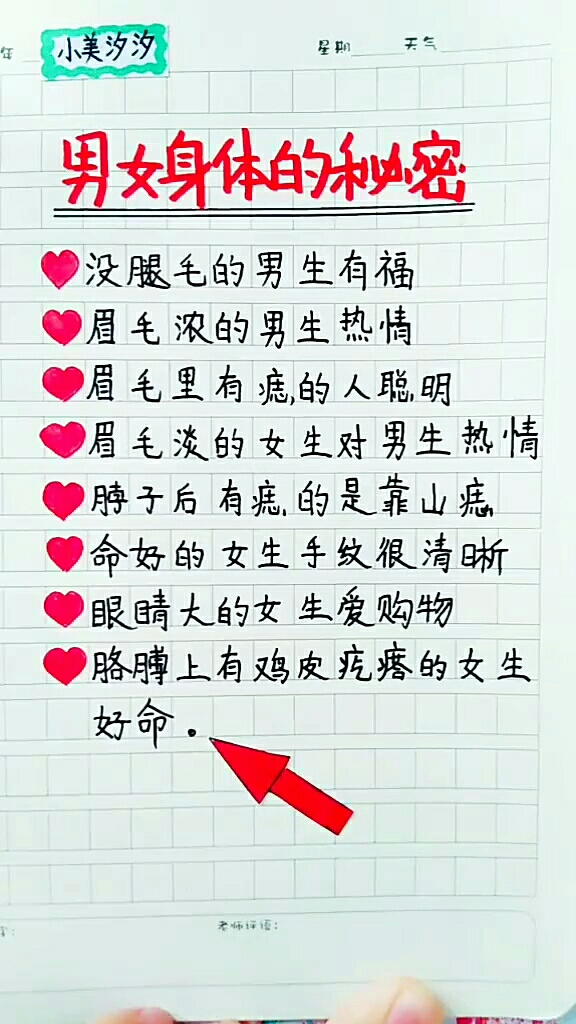 年
小美汐汐
星期 天气
男女身体的秘密
没腿毛的男生有福
眉毛浓的男生热情
眉毛里有痣的人聪明
眉毛淡的女生对男生热情
脖子后有痣的是靠山痣
命好的女生手纹很清晰
眼睛大的女生爱购物
胳膊上有鸡皮疙瘩的女生
好命。
老师评语: